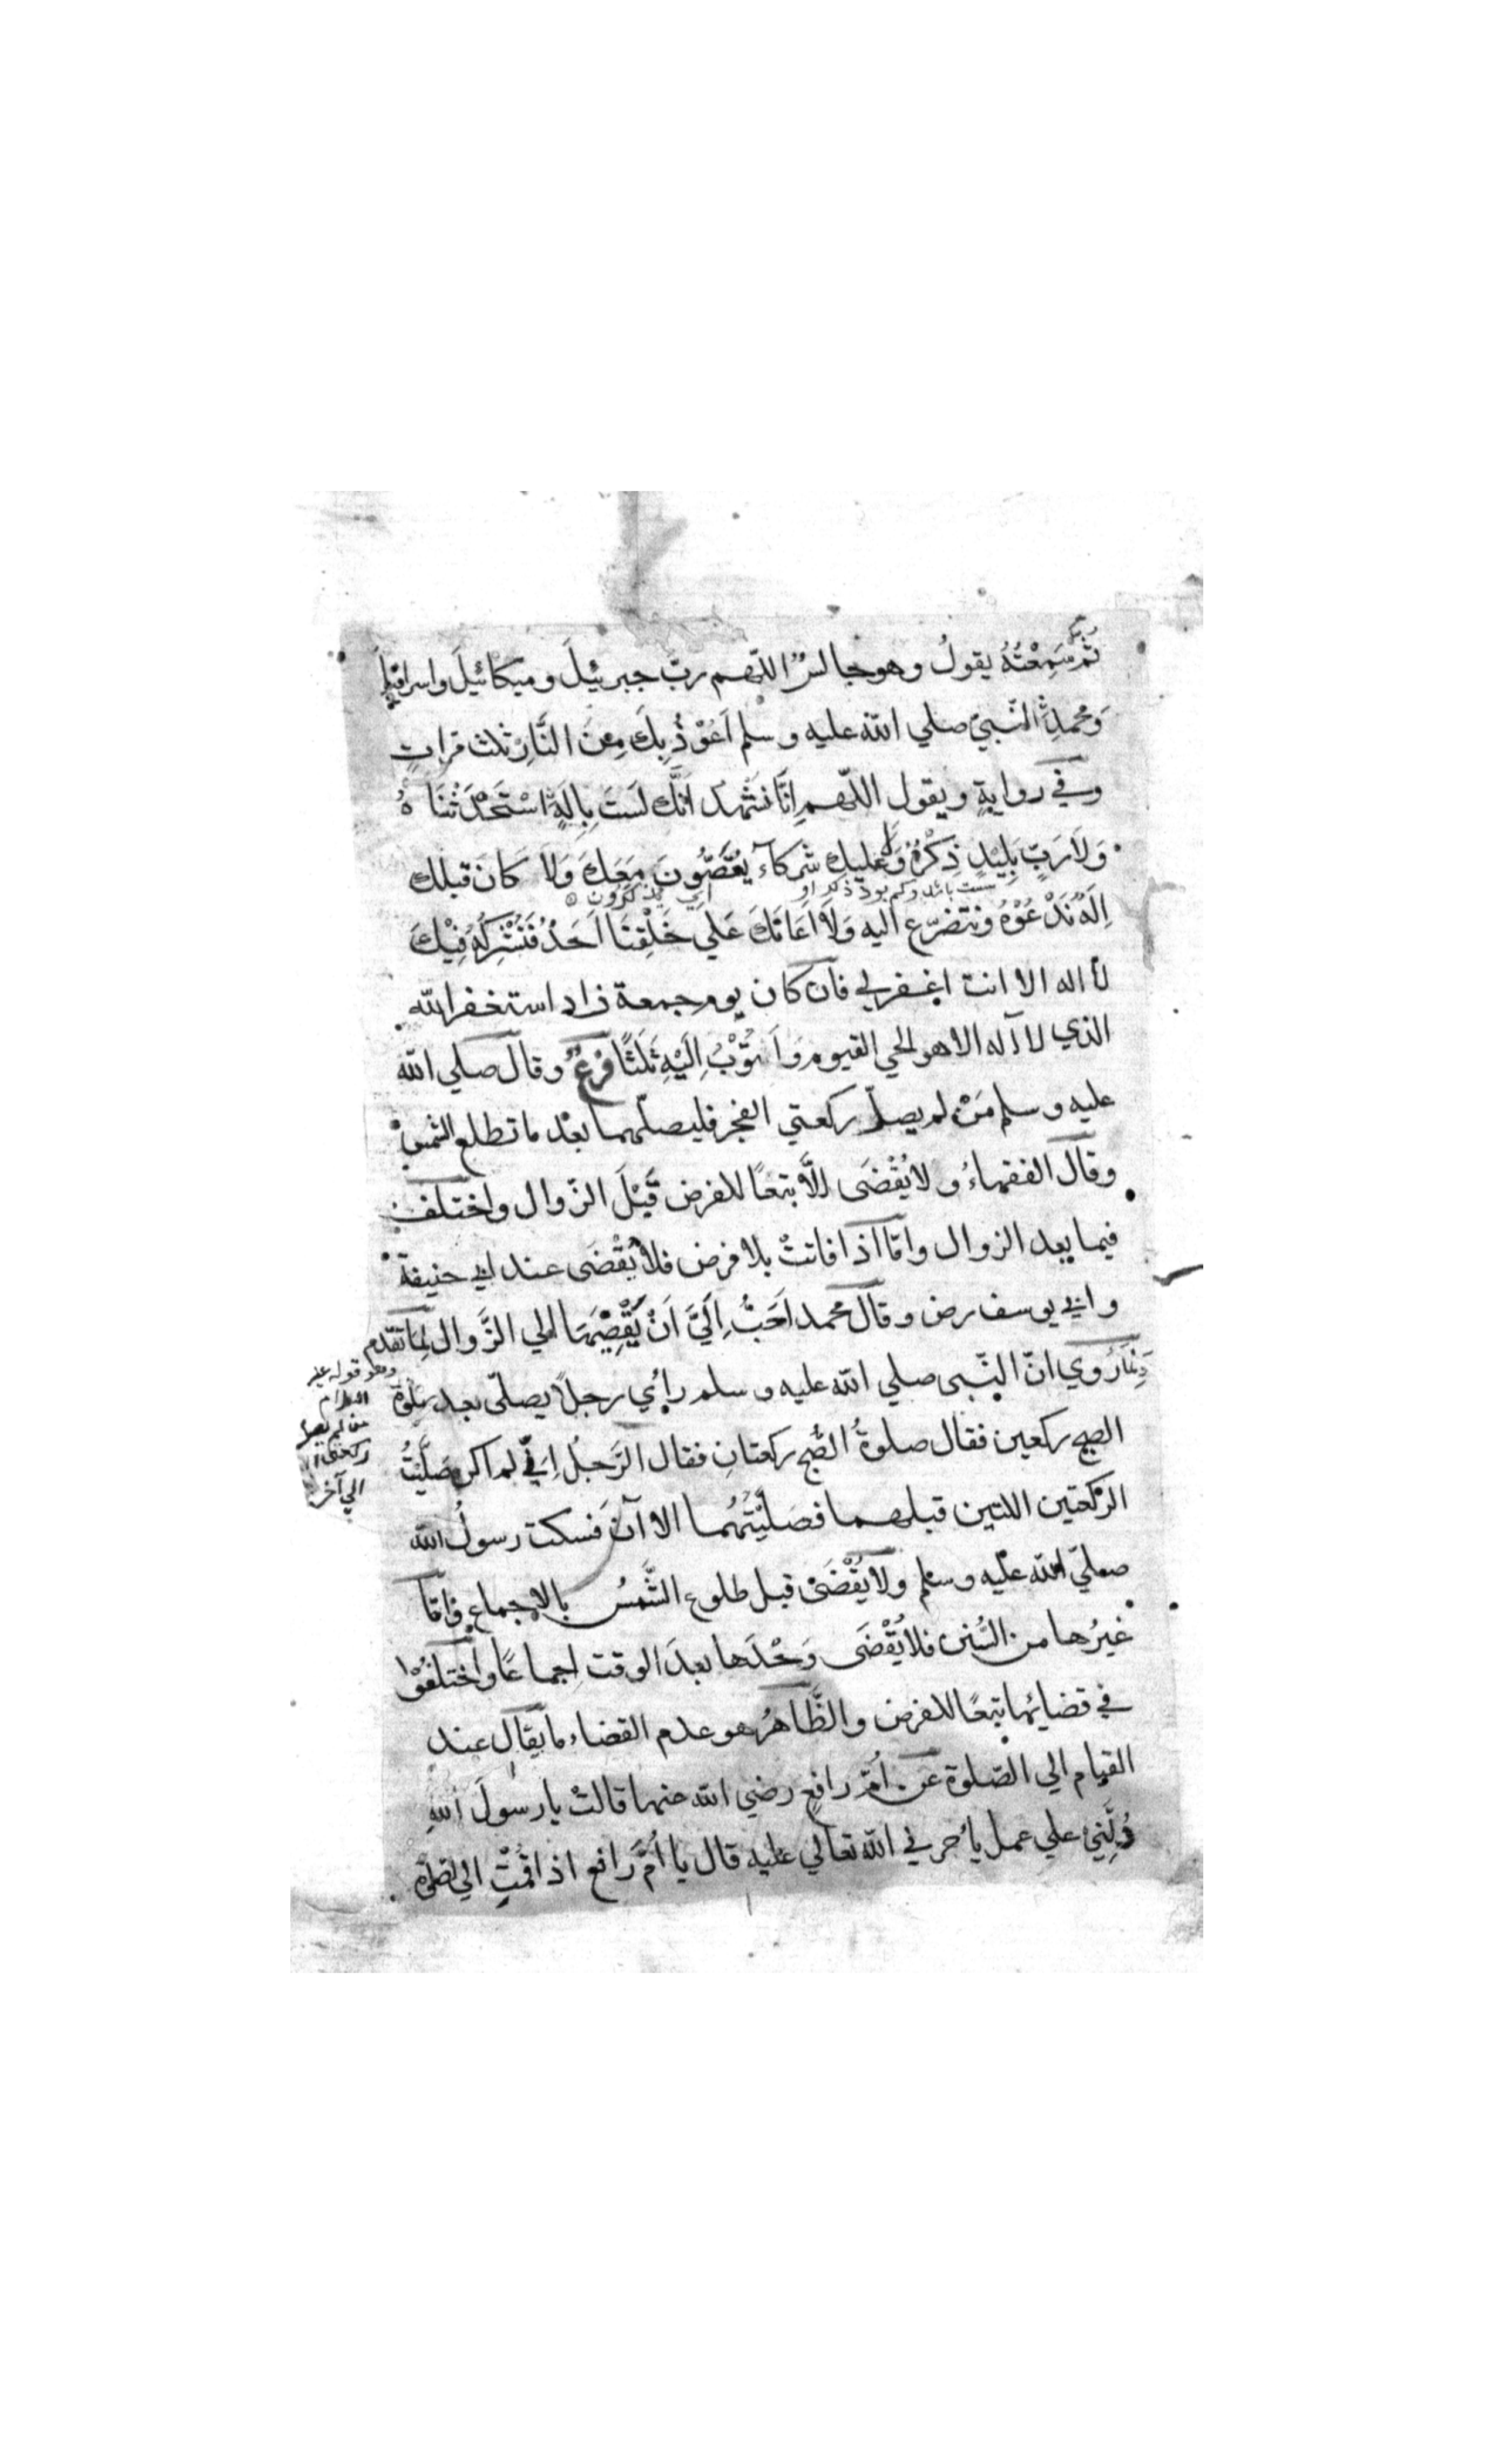 ثم سَمِعْتُهُ يقولُ وهو جالسٌ اللّهم ربّ جبرئيلَ وميكائيلَ واسرافيلَ
وَمحمدِ النّبيّ صلي الله عليه وسلم اَعُوْذُ بِكَ مِنَ النَّارِ ثلث مرات
وفي روايةٍ ويقول اللّهم اِنَّا نَشْهدُ اَنَّكَ لَسْتَ بِاِلَهٍ اسْتَحْدَثْنَاهُ
وَلَا رَبٍّ يَبِيْدُ ذِكْرُهُ وَلا عليك شركآء يَقْضُونَ مَعَكَ وَلَا كَانَ قبلك
سست باشد وكم بود ذكر او
اي يذكرون
اِلَهٌ نَدْعُوْهُ ونتضرّع اليه وَلَا اَعَانَكَ عَلي خَلْقِنَا اَحَدٌ فَنُشْرِكَهُ فِيْكَ
لا اله الا انت اغفر لي فان كان يوم جمعة زاد استغفر الله
الذي لا اله الا هو الحي القيوم وَاَتُوْبُ اِلَيْهِ ثَلثًا فرعٌ وقال صلي الله
عليه وسلم مَنْ لم يصلّ ركعتي الفجر فليصلّهما بعْد ما تطلع الشمسُ
وقال الفقهاءُ ولا يُقْضَى اِلَّا تبعًا للفرض قَبْلَ الزّوال واختلف
فيما بعد الزوال وامّا اذا فاتتْ بلا فرض فلا يُقْضَى عند ابي حنيفة
وابي يوسف رض وقال محمد اَحَبُّ اِلَيَّ اَنْ يَقْضِيَهَا الي الزَّوال لِمَا تقدّم
وهو قوله عليه
السلام
من لم يصل
ركعتي ا
الي آخر
رُوي انّ النّبى صلي الله عليه وسلم رأي رجلًا يصلّى بعد صلوة
الصبح ركعين فقال صلوةُ الصُّبح ركعتانِ فقال الرَّجلُ اِنِّي لم اكن صَلَّيْتُ
الركعتين اللتين قبلهما فصَلَّيْتُهُما الاآنَ فسكت رسولُ الله
صلّي الله عليه وسلم ولا يُقْضَى قبل طلوع الشَّمسُ بالاجماع وامّا
غيرُها من السُّنن فلا يُقْضَى وَحْدَها بعدَ الوقت اِجماعًا واختلفُوْا
في قضائها تبعًا للفرض والظَّاهرُ هو عدم القضاء ما يقال عند
القيام الي الصّلوة عن اُمّ رافعٍ رضي الله عنها قالتْ يا رسولَ اللهِ
دُلَّنِي علي عمل ياُجرني الله تعالي عليه قال يا اُمَّ رافع اذا قُمْتِ الي الصلوة